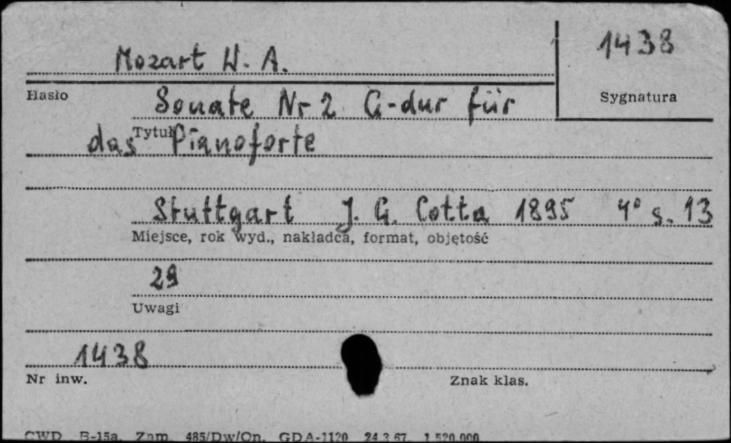 Mozart W. A.
1438
Hasło
Sonate Nr 2 G-dur für
Sygnatura
Tytuł
das Pianoforte
Stuttgart J. G. Cotta 1895 4° s. 13
Miejsce, rok wyd., nakładca, format, objętość
29
Uwagi
1438
Nr inw.
Znak klas.
CWD B-15a. Zam. 485/Dw/On. GDA-1120 24.2.67. 1.520.000